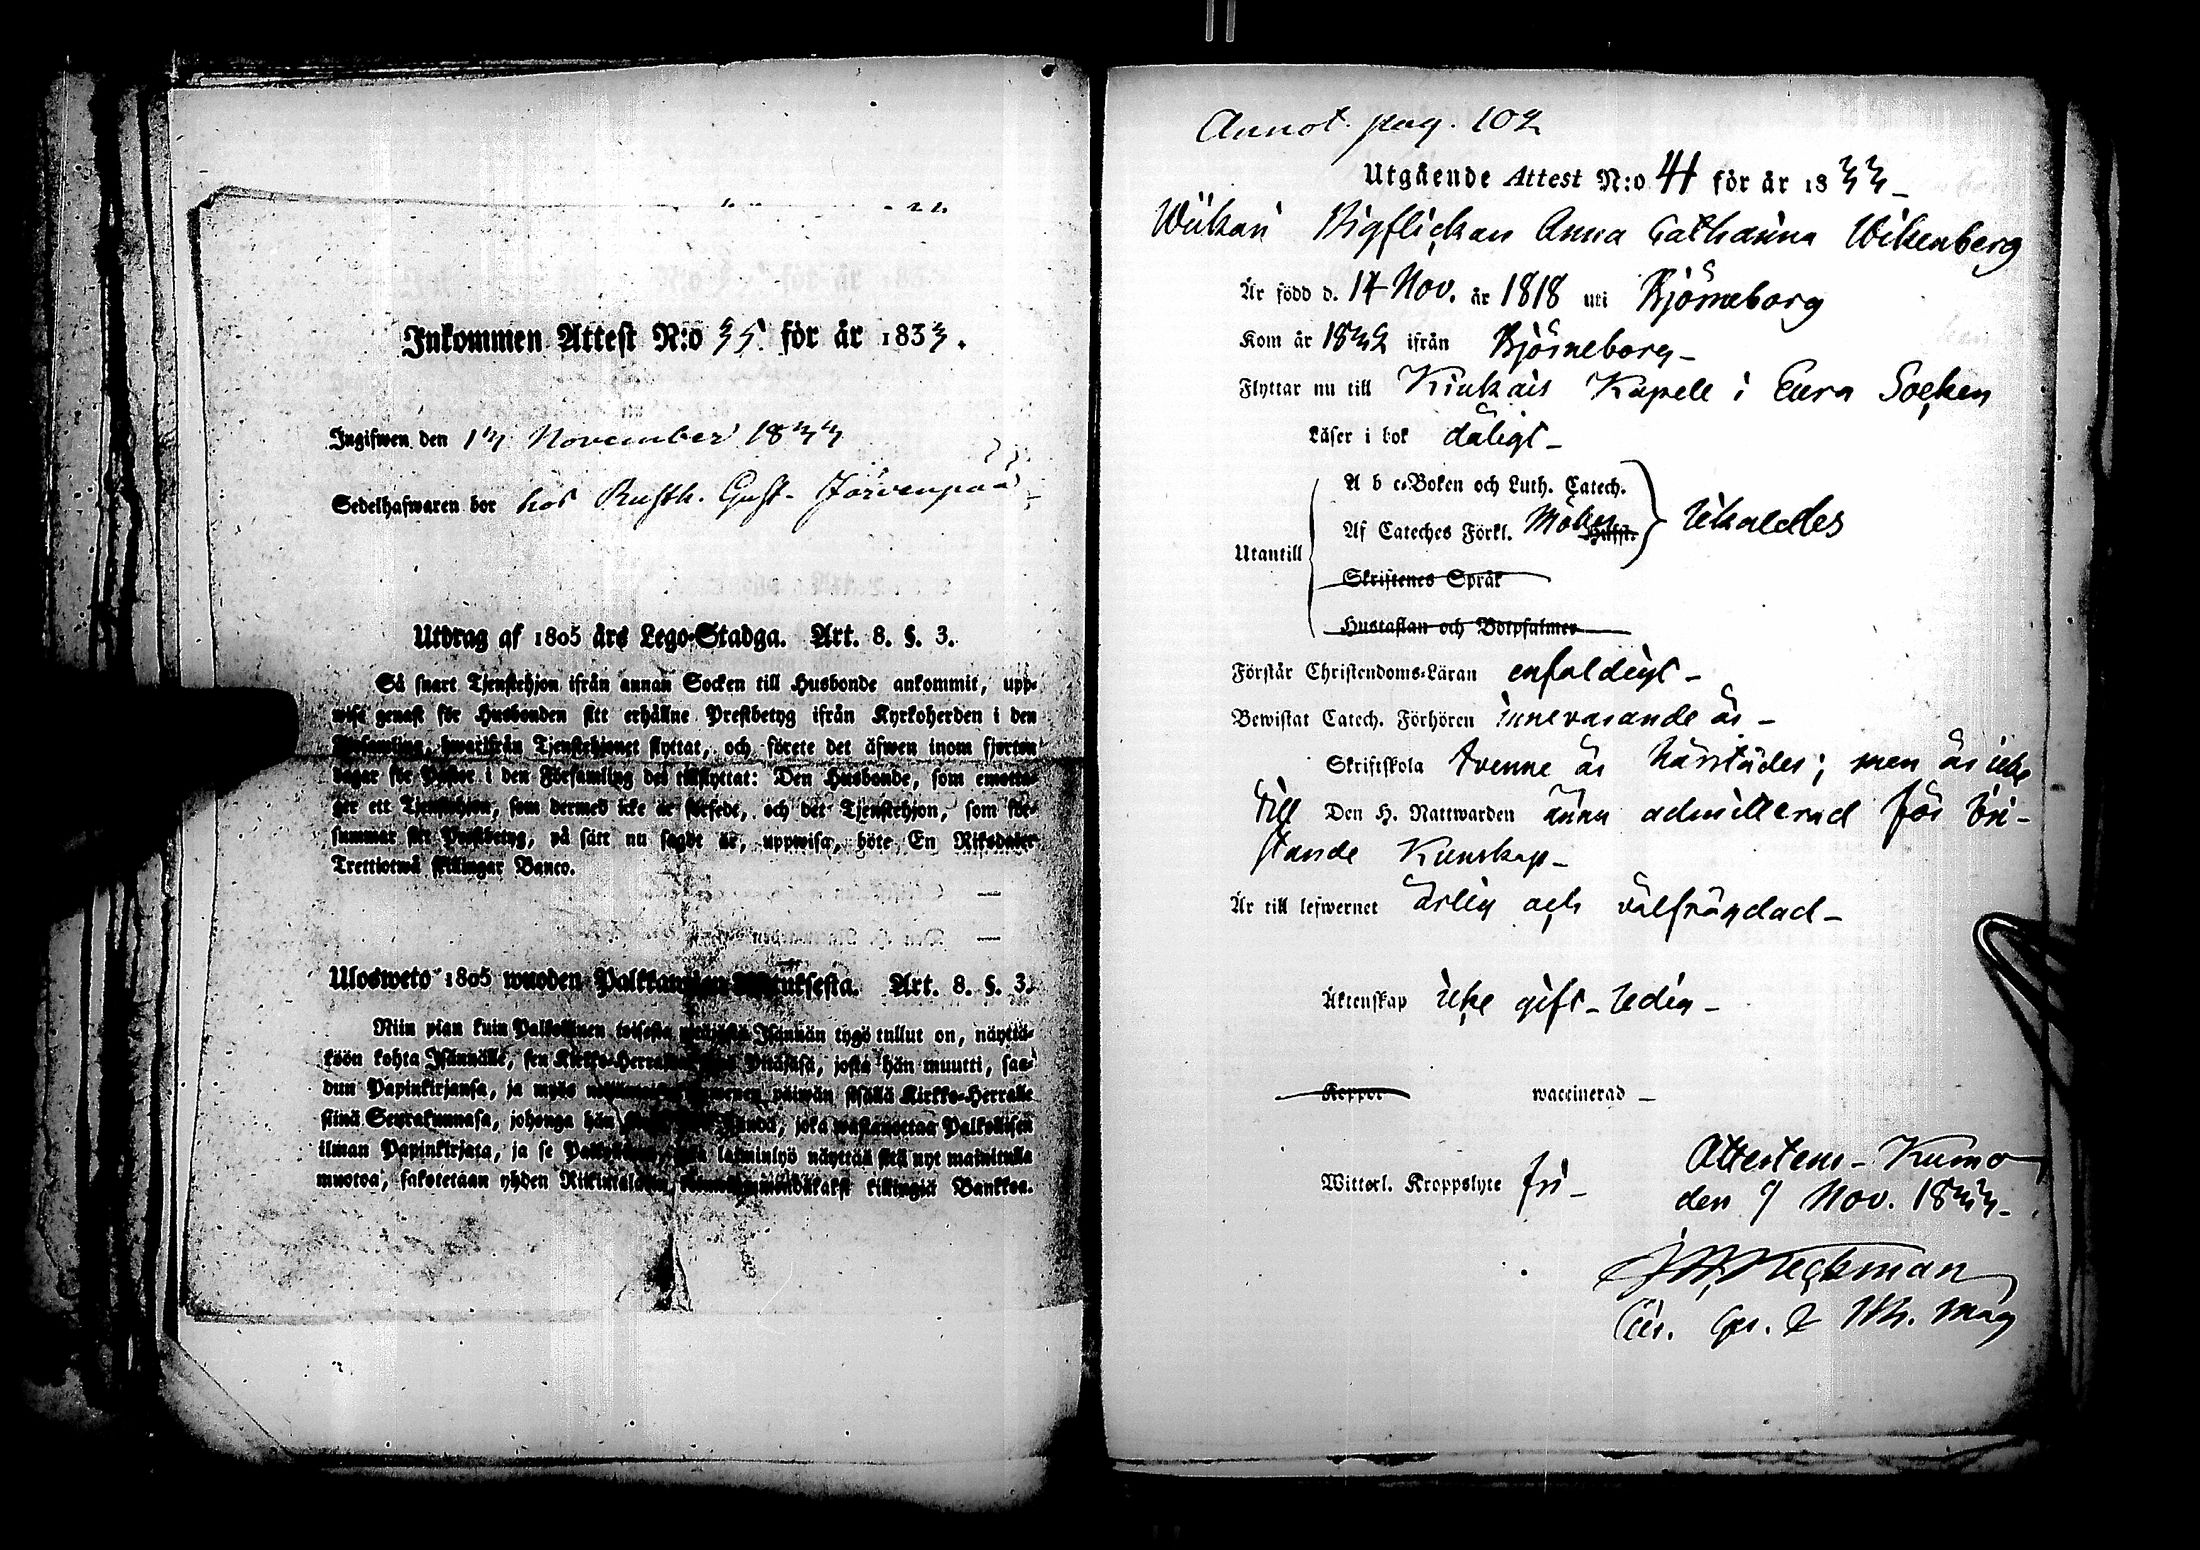 Inkommen Attest N:o 35 för år 1833.
Ingifwen den 13 November 1833
Sedelhafwaren bor hos Rusth. Gust. Järvenpää
Utdrag af 1805 års Lego-Stadga. Art. 8. §. 3.
Så snart Tjenstehjon ifrån annan Socken till Husbonde ankommit, upp-
wise genast för Husbonden sitt erhållne Prestbetyg ifrån Kyrkoherden i den
Församling, hwarifrån Tjenstehjonet flyttat, och förete det äfwen inom fjorton
dagar för Pastor i den Församling det tillflyttat: Den Husbonde, som emotta-
ger ett Tjenstehjon, som dermed icke är försedt, och det Tjenstehjon, som för-
summar sitt Prestbetyg, på sätt nu sagdt är, uppwisa, böte En Riksdaler
Trettiotwå skillingar Banco.
Uloswето 1805 wuoden Art. 8. §. 3.
Niin pian kuin Palkollinen toisesta Isännän tygö tullut on, näyttä-
köön kohta Isännälle, sen Kirkko-Herralta Pitäjäsä, josta hän muutti, saa-
dun Papinkirjansa, ja myös päiwän sisällä Kirkko-Herralle
siinä Seurakunnasa, johonga hän joka wastanottaa Palkollisen
ilman Papinkirjata, ja se laiminlyö näyttää sitä nyt mainitulla
muotoa, sakotetaan yhden killingiä Bankkoa.
Annot. pag. 102
Utgående Attest N:o 41 för år 1833
Pigflickan Anna Catharina Wikenberg
Är född d. 14 Nov. år 1818 uti Björneborg
Kom år 1832 ifrån Björneborg
Flyttar nu till Kiukais Kapell i Eura Socken
Läser i bok dåligt
A b c-Boken och Luth. Catech.
Af Cateches Förkl.
Utantill
Skriftenes Språk
Hustaflan och Botpsalmer
Förstår Christendoms-Läran enfaldigt
Bewistat Catech. Förhören innevarande år
Skriftskola tvenne år härstädes; men är icke
till Den H. Nattwarden ännu admitterad för bri-
stande Kunskap
Är till lefwernet ärlig och välfrägdad
Äktenskap icke gift - ledig
Koppor waccinerad
Witterl. Kroppslyte fri
Attesteras - Kumo
den 9 Nov. 1833